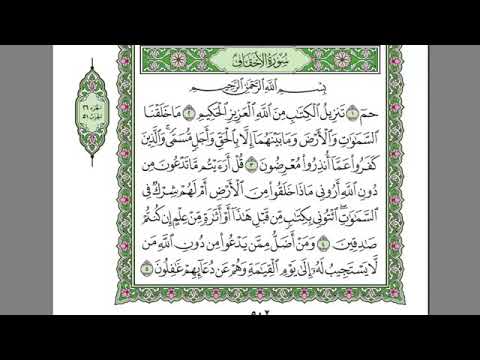 سُورَةُ الأَحْقَافِ
بِسْمِ اللَّهِ الرَّحْمَٰنِ الرَّحِيمِ
حمٓ ١ تَنزِيلُ ٱلْكِتَٰبِ مِنَ ٱللَّهِ ٱلْعَزِيزِ ٱلْحَكِيمِ ٢ مَا خَلَقْنَا
ٱلسَّمَٰوَٰتِ وَٱلْأَرْضَ وَمَا بَيْنَهُمَآ إِلَّا بِٱلْحَقِّ وَأَجَلٍ مُّسَمًّى ۚ وَٱلَّذِينَ
كَفَرُوا۟ عَمَّآ أُنذِرُوا۟ مُعْرِضُونَ ٣ قُلْ أَرَءَيْتُم مَّا تَدْعُونَ مِن
دُونِ ٱللَّهِ أَرُونِى مَاذَا خَلَقُوا۟ مِنَ ٱلْأَرْضِ أَمْ لَهُمْ شِرْكٌ فِى
ٱلسَّمَٰوَٰتِ ۖ ٱئْتُونِى بِكِتَٰبٍ مِّن قَبْلِ هَٰذَآ أَوْ أَثَٰرَةٍ مِّنْ عِلْمٍ إِن كُنتُمْ
صَٰدِقِينَ ٤ وَمَنْ أَضَلُّ مِمَّن يَدْعُوا۟ مِن دُونِ ٱللَّهِ مَن
لَّا يَسْتَجِيبُ لَهُۥٓ إِلَىٰ يَوْمِ ٱلْقِيَٰمَةِ وَهُمْ عَن دُعَآئِهِمْ غَٰفِلُونَ ٥
الجزء ٢٦
الحزب ٥١
٥٠٢